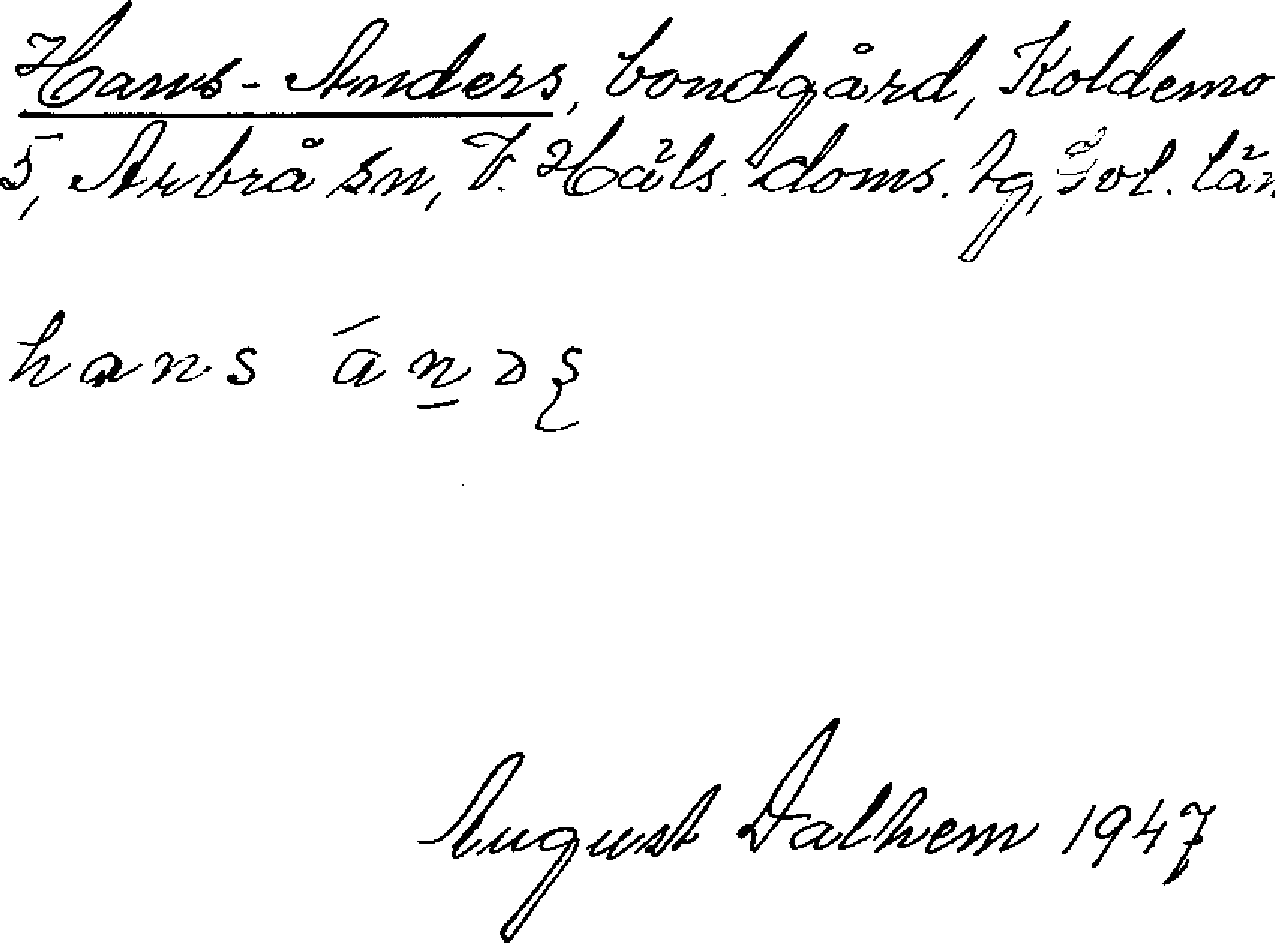 Hans-Anders, bondgård, Koldemo
5, Arbrå sn, V. Häls. doms. tg, Gvl. län
hans ánəş
August Dalhem 1947